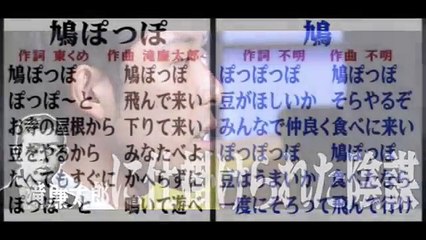 鳩ぽっぽ
作詞 東くめ 作曲 滝廉太郎
鳩ぽっぽ 鳩ぽっぽ
ぽっぽ～と 飛んで来い
お寺の屋根から 下りて来い
豆をやるから みなたべよ
たべてもすぐに かへらずに
ぽっぽ～と 鳴いて遊べ
鳩
作詞 不明 作曲 不明
ぽっぽっぽ 鳩ぽっぽ
豆がほしいか そらやるぞ
みんなで仲良く 食べに来い
ぽっぽっぽ 鳩ぽっぽ
豆はうまいか 食べたなら
一度にそろって 飛んで行け
滝廉太郎
に仕掛けられた陰謀